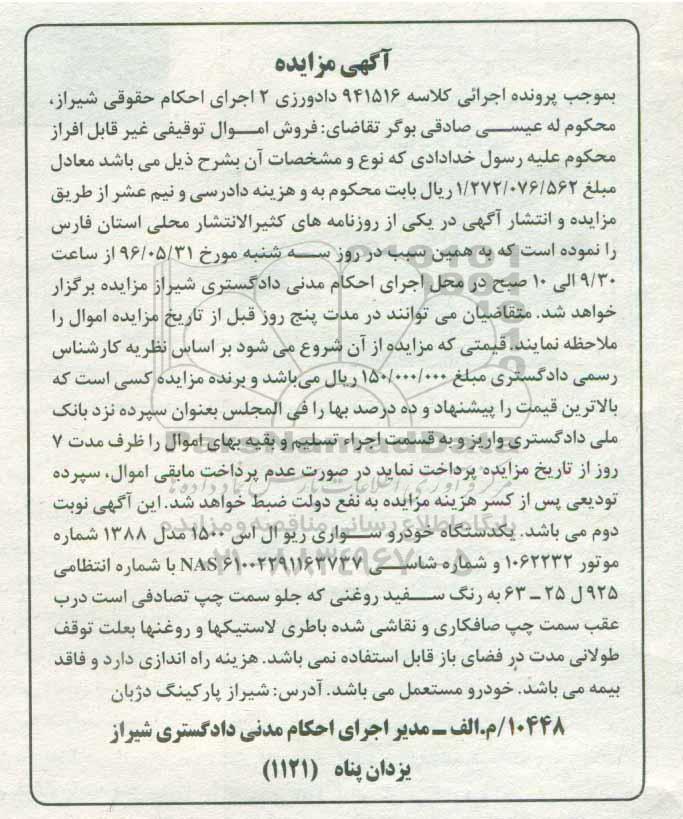 آگهی مزایده
بموجب پرونده اجرائی کلاسه ۹۴۱۵۱۶ دادورزی ۲ اجرای احکام حقوقی شیراز،
محکوم له عیسی صادقی بوگر تقاضای: فروش اموال توقیفی غیر قابل افراز
محکوم علیه رسول خدادادی که نوع و مشخصات آن بشرح ذیل می باشد معادل
مبلغ ۱/۲۷۲/۰۷۶/۵۶۲ ریال بابت محکوم به و هزینه دادرسی و نیم عشر از طریق
مزایده و انتشار آگهی در یکی از روزنامه های کثیرالانتشار محلی استان فارس
را نموده است که به همین سبب در روز سه شنبه مورخ ۹۶/۰۵/۳۱ از ساعت
۹/۳۰ الی ۱۰ صبح در محل اجرای احکام مدنی دادگستری شیراز مزایده برگزار
خواهد شد. متقاضیان می توانند در مدت پنج روز قبل از تاریخ مزایده اموال را
ملاحظه نمایند. قیمتی که مزایده از آن شروع می شود بر اساس نظریه کارشناس
رسمی دادگستری مبلغ ۱۵۰/۰۰۰/۰۰۰ ریال می‌باشد و برنده مزایده کسی است که
بالاترین قیمت را پیشنهاد و ده درصد بها را فی المجلس بعنوان سپرده نزد بانک
ملی دادگستری واریز و به قسمت اجراء تسلیم و بقیه بهای اموال را ظرف مدت ۷
روز از تاریخ مزایده پرداخت نماید در صورت عدم پرداخت مابقی اموال، سپرده
تودیعی پس از کسر هزینه مزایده به نفع دولت ضبط خواهد شد. این آگهی نوبت
دوم می باشد. یکدستگاه خودرو سواری ریو ال اس ۱۵۰۰ مدل ۱۳۸۸ شماره
موتور ۱۰۶۲۲۳۲ و شماره شاسی NAS۶۱۰۰۲۲۹۱۱۶۳۷۳۷ با شماره انتظامی
۹۲۵ ل ۲۵ ــ ۶۳ به رنگ سفید روغنی که جلو سمت چپ تصادفی است درب
عقب سمت چپ صافکاری و نقاشی شده باطری لاستیکها و روغنها بعلت توقف
طولانی مدت در فضای باز قابل استفاده نمی باشد. هزینه راه اندازی دارد و فاقد
بیمه می باشد. خودرو مستعمل می باشد. آدرس: شیراز پارکینگ دژبان
۱۰۴۴۸/م.الف ــ مدیر اجرای احکام مدنی دادگستری شیراز
یزدان پناه (۱۱۲۱)
ParsNamadData
پایگاه اطلاع رسانی مناقصه و مزایده
۰۲۱-۸۸۳۴۹۶۷۰